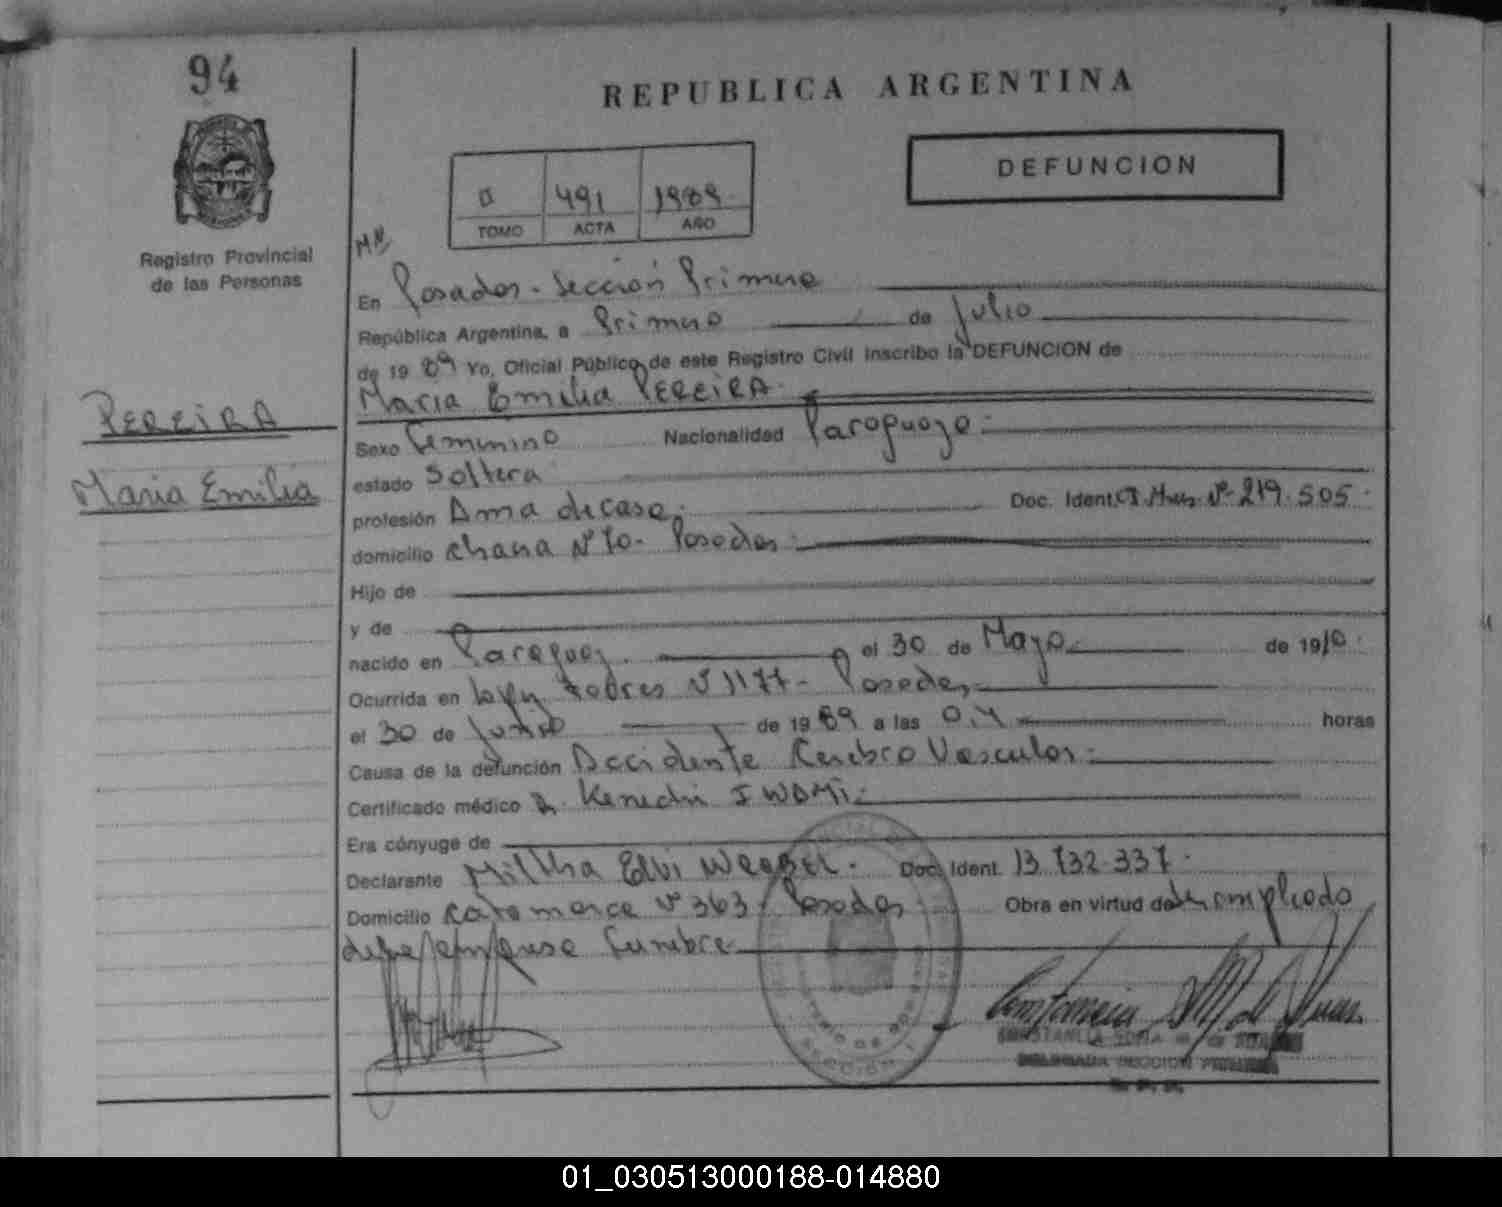 94
REPUBLICA ARGENTINA
DEFUNCION
II 491 1989
TOMO ACTA AÑO
Registro Provincial
de las Personas
En Posadas - Sección Primera
República Argentina, a Primero de Julio
de 1989 Yo, Oficial Público de este Registro Civil inscribo la DEFUNCION de
Maria Emilia PEREIRA
PEREIRA
Maria Emilia
Sexo Femenino Nacionalidad Paraguaya
estado Soltera
profesión Ama de casa Doc. Ident. Nº 219.505
domicilio chaca Nº 70 - Posadas
Hijo de
y de
nacido en Paraguay el 30 de Mayo de 1910
Ocurrida en Nº 1177 - Posadas
el 30 de Junio de 1989 a las horas
Causa de la defunción Accidente Cerebro Vascular
Certificado médico Dr.
Era cónyuge de
Declarante Doc. Ident. 13.732.337
Domicilio Catamarca Nº 363 - Posadas Obra en virtud de empleado
de la empresa Funebre
SECCION 1
DELEGADA SECCION PRIMERA
01_030513000188-014880